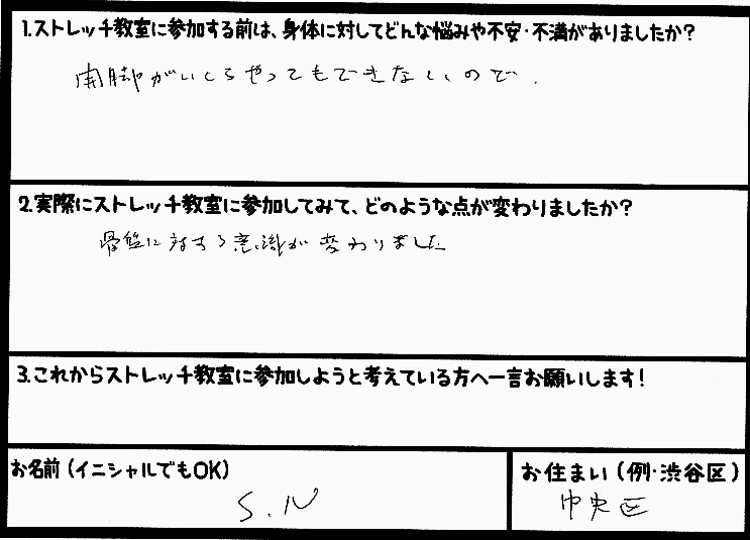 1.ストレッチ教室に参加する前は、身体に対してどんな悩みや不安・不満がありましたか?
開脚がいくらやってもできないので.
2.実際にストレッチ教室に参加してみて、どのような点が変わりましたか?
骨盤に対する意識が変わりました
3.これからストレッチ教室に参加しようと考えている方へ一言お願いします!
お名前(イニシャルでもOK)
S.N
お住まい(例・渋谷区)
中央区